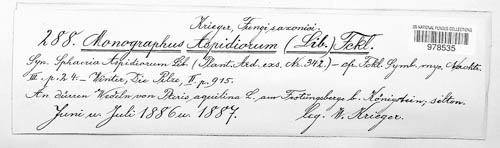 Krieger, Fungi saxonici.
US NATIONAL FUNGUS COLLECTIONS
978535
288. Monographus Aspidiorum (Lib.) Fckl.
Syn. Sphaeria Aspidiorum Lib. (Plant. Ard. exs. No. 342.) – cfr. Fckl. Symb. myc. Nachtr.
III. p. 24. – Winter, Die Pilze, II. p. 915.
An dürren Wedeln von Pteris aquilina L. am Festungsberge b. Königstein; selten.
Juni u. Juli 1886 u. 1887. leg. W. Krieger.